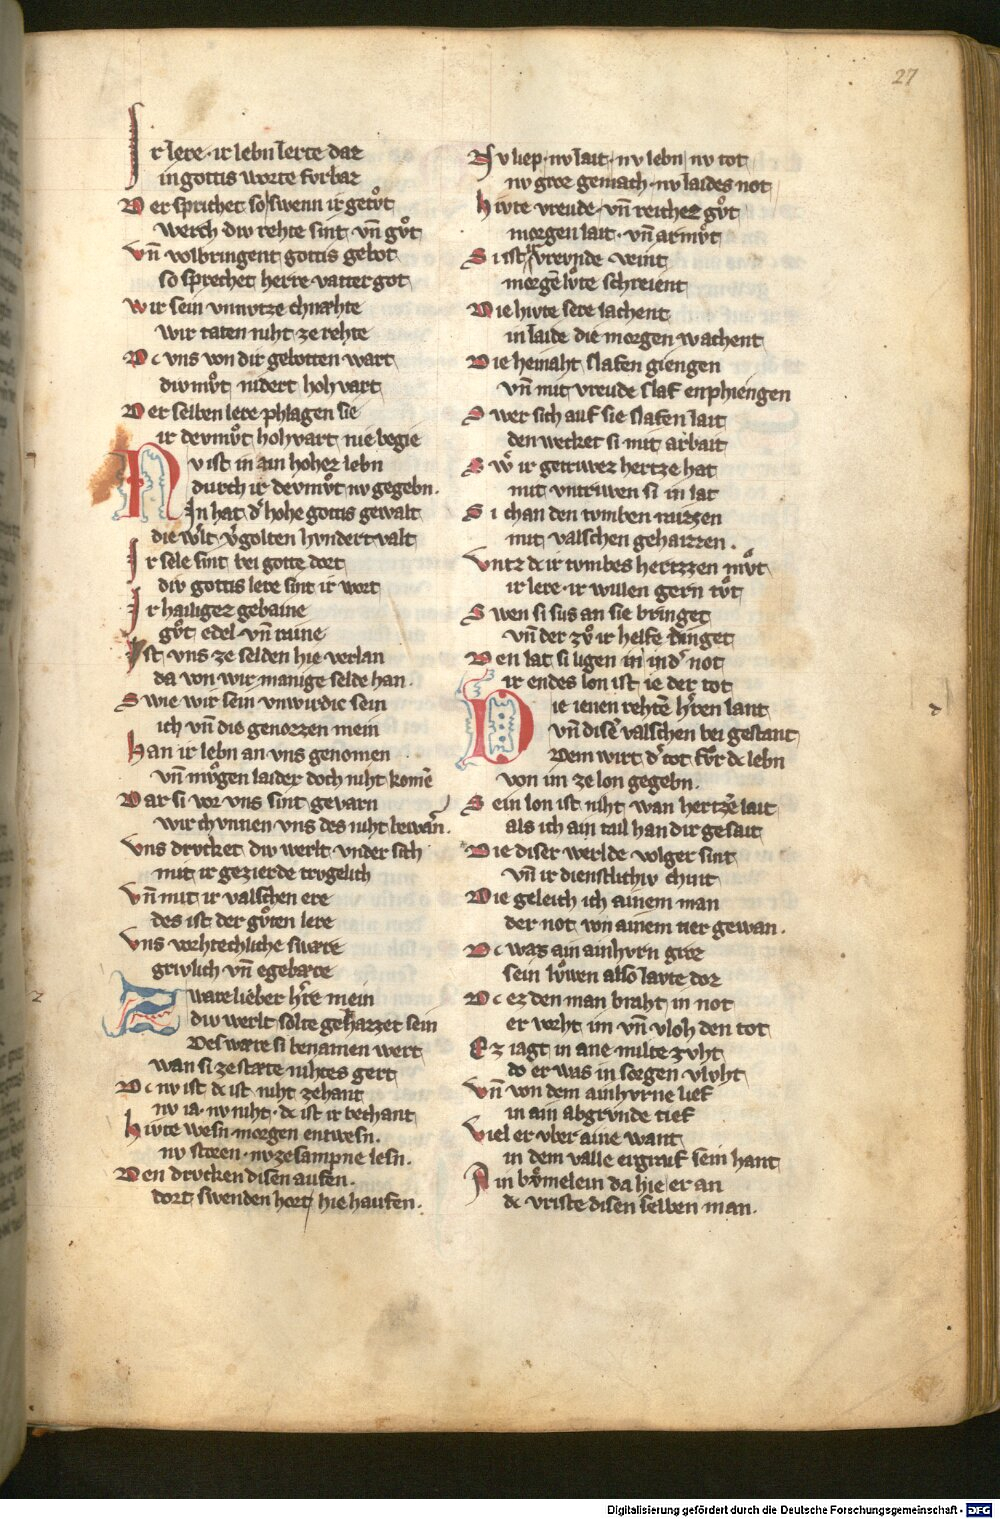 27
Ir lere · ir lebn lerte dar
in gottis worte furbar
Der sprichet so swenn ir getuͦt
werch div rehte sint vn̄ guͦt
Vn̄ volbringent gottis gebot
so sprechet herre vatter got
wir sein vnnvtze chnæhte
wir taten niht ze rehte
Dc vns von dir gebotten wart
div muͦt nidert hohvart
Der selben lere phlagen sie
ir devmuͦt hohvart nie begie
Nv ist in ain hoher lebn
durch ir devmuͦt nv gegebn.
In hat d' hohe gottis gewalt
die w'lt v'golten hvndertvalt
Ir sele sint bei gotte dort
div gottis lere sint ir wort
Ir hailiger gebaine
guͦt edel vn̄ raine
Ist vns ze selden hie verlan
da von wir manige selde han.
Swie wir sein vnwirdic sein
ich vn̄ die genozzen mein
han ir lebn an vns genomen
vn̄ mvͦgen laider doch niht komē
Dar si vor vns sint gevarn
wir chvnnen vns des niht bewarn.
Vns drvcket div werlt vnder sich
mit ir gezierde trvgelich
Vn̄ mit ir valschen ere
des ist der guͦten lere
Vns vorhtechliche swære
griwlich vn̄ egebære
Zware lieber h're mein
div werlt solte gehazzet sein
Des wære si benamen wert
wan si ze stæte nihtes gert
Dc nv ist dc ist niht zehant
nv ia · nv niht · dc ist ir bechant
hivte wesn morgen entwesn.
nv stœren · nv ze sampne lesn.
Den drvcken disen aufen.
dort swenden hort hie haufen.
Nv liep · nv lait · nv lebn nv tot
nv groz gemach · nv laides not
hivte vreude · vn̄ reichez guͦt
morgen lait · vn̄ armuͦt
Si ist vrevnde veint
morgē lvͦte schreient
Die hivte sere lachent
in laide die morgen wachent
Die heinaht slafen giengen
vn̄ mit vreude slaf enphiengen
Swer sich auf sie slafen lait
den wecket si mit arbait
Sw' ir getriwez hertze hat
mit vntriwen si in lat
Si chan den tvmben raizzen
mit valschen gehaizzen.
Vntz dc ir tvmbes hertzzen muͦt
ir lere · ir willen gern tuͦt
Swen si sus an sie bringet
vn̄ der zvͦ ir helfe dinget
Den lat si ligen in ind' not
ir endes lon ist ie der tot
Die ienen rehtē h'ren lant
vn̄ dise valschen bei gestant
Dem wirt d' tot fvͦr dc lebn
von im ze lon gegebn.
Sein lon ist niht wan hertzē lait
als ich ain tail han dir gesait
Die diser werlde volger sint
vn̄ ir dienstlichiv chint
Die geleich ich ainem man
der not von ainem tier gewan.
Dc waz ain ainhvrn groz
sein lvͦwen also lavte doz
Dc ez den man braht in not
er vorht im vn̄ vloh den tot
Ez iagt in ane milte zvht
do er was in sorgen vlvht
Vn̄ von dem ainhvrne lief
in ain abgrvnde tief
Viel er vber aine want
in dem valle ergraif sein hant
Ain bvͦmelein da hie er an
dc vriste disen selben man.
Digitalisierung gefördert durch die Deutsche Forschungsgemeinschaft - DFG